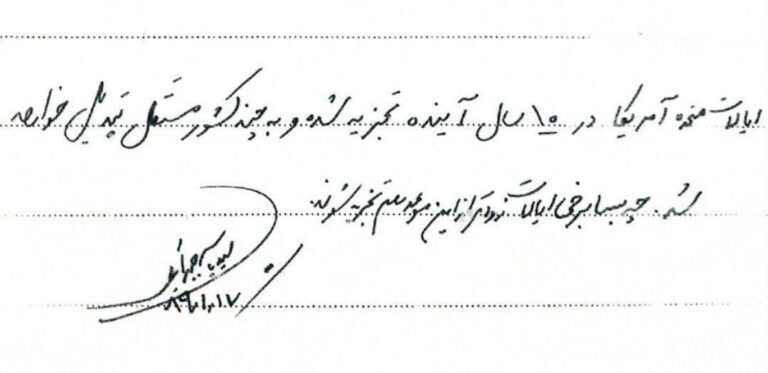 ایالات متحده آمریکا در ۱۵ سال آینده تجزیه شده و به چند کشور مستقل تبدیل خواهد
شد. چه بسا برخی ایالات زودتر از این موعد هم تجزیه شوند.
سید
۸۹/۱۰/۱۷